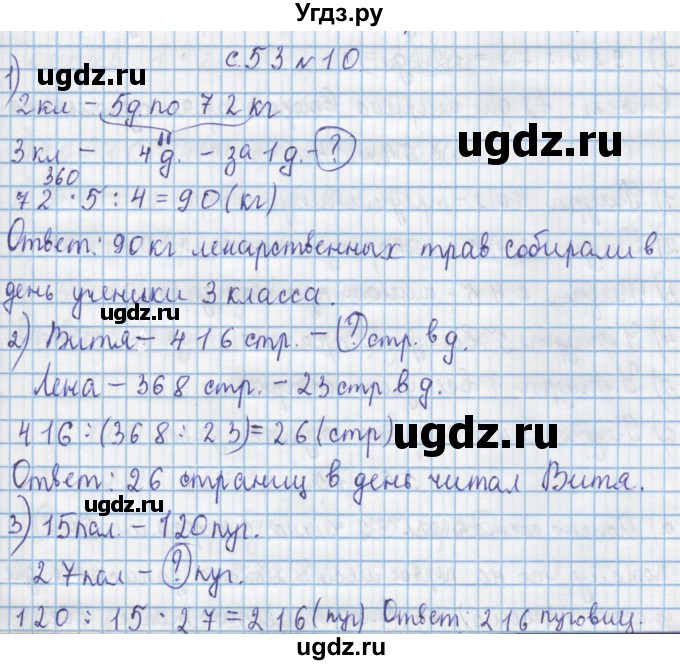 Угдз.ру
с.53 №10
ugdz.ru
1)
2кл – 5д. по 72 кг
"
3кл – 4д. – за 1д. – ?
360
72 · 5 : 4 = 90 (кг)
Ответ: 90 кг лекарственных трав собирали в
день ученики 3 класса.
ugdz.ru
2) Витя – 416 стр. – ? стр. в д.
Лена – 368 стр. – 23 стр в д.
416 : (368 : 23) = 26 (стр)
ugdz.ru
Ответ: 26 страниц в день читал Витя.
ugdz.ru
3) 15 пал. – 120 пуг.
27 пал – ? пуг.
120 : 15 · 27 = 216 (пуг) Ответ: 216 пуговиц.
ugdz.ru
ugdz.ru